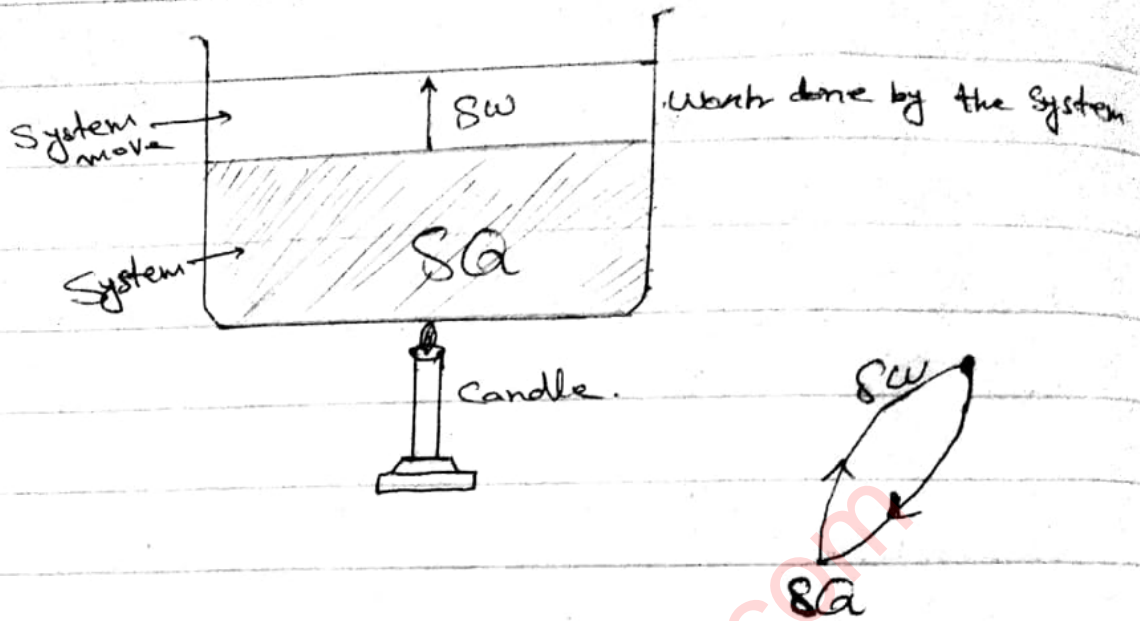 System move
δW
Work done by the System
System
δQ
Candle.
δW
δQ
com